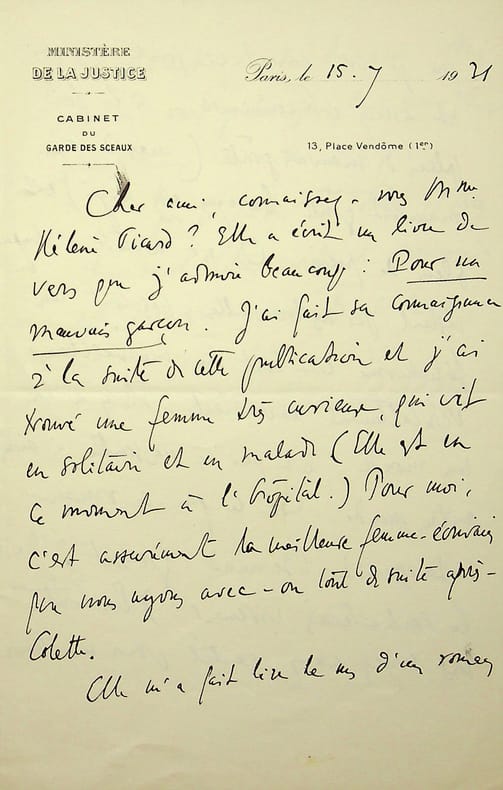 MINISTÈRE
DE LA JUSTICE
CABINET
DU
GARDE DES SCEAUX
Paris, le 15. 7 1931
13, Place Vendôme (1er)
Cher ami, connaissez-vous Mme
Hélène Picard ? Elle a écrit un livre de
vers que j'admire beaucoup : Pour un
mauvais garçon. J'ai fait sa connaissance
à la suite de cette publication et j'ai
trouvé une femme très curieuse, qui vit
en solitaire et en malade (Elle est en
ce moment à l'hôpital.) Pour moi,
c'est assurément la meilleure femme-écrivain
que nous ayons avec - ou tout de suite après -
Colette.
Elle m'a fait lire le ms d'un roman